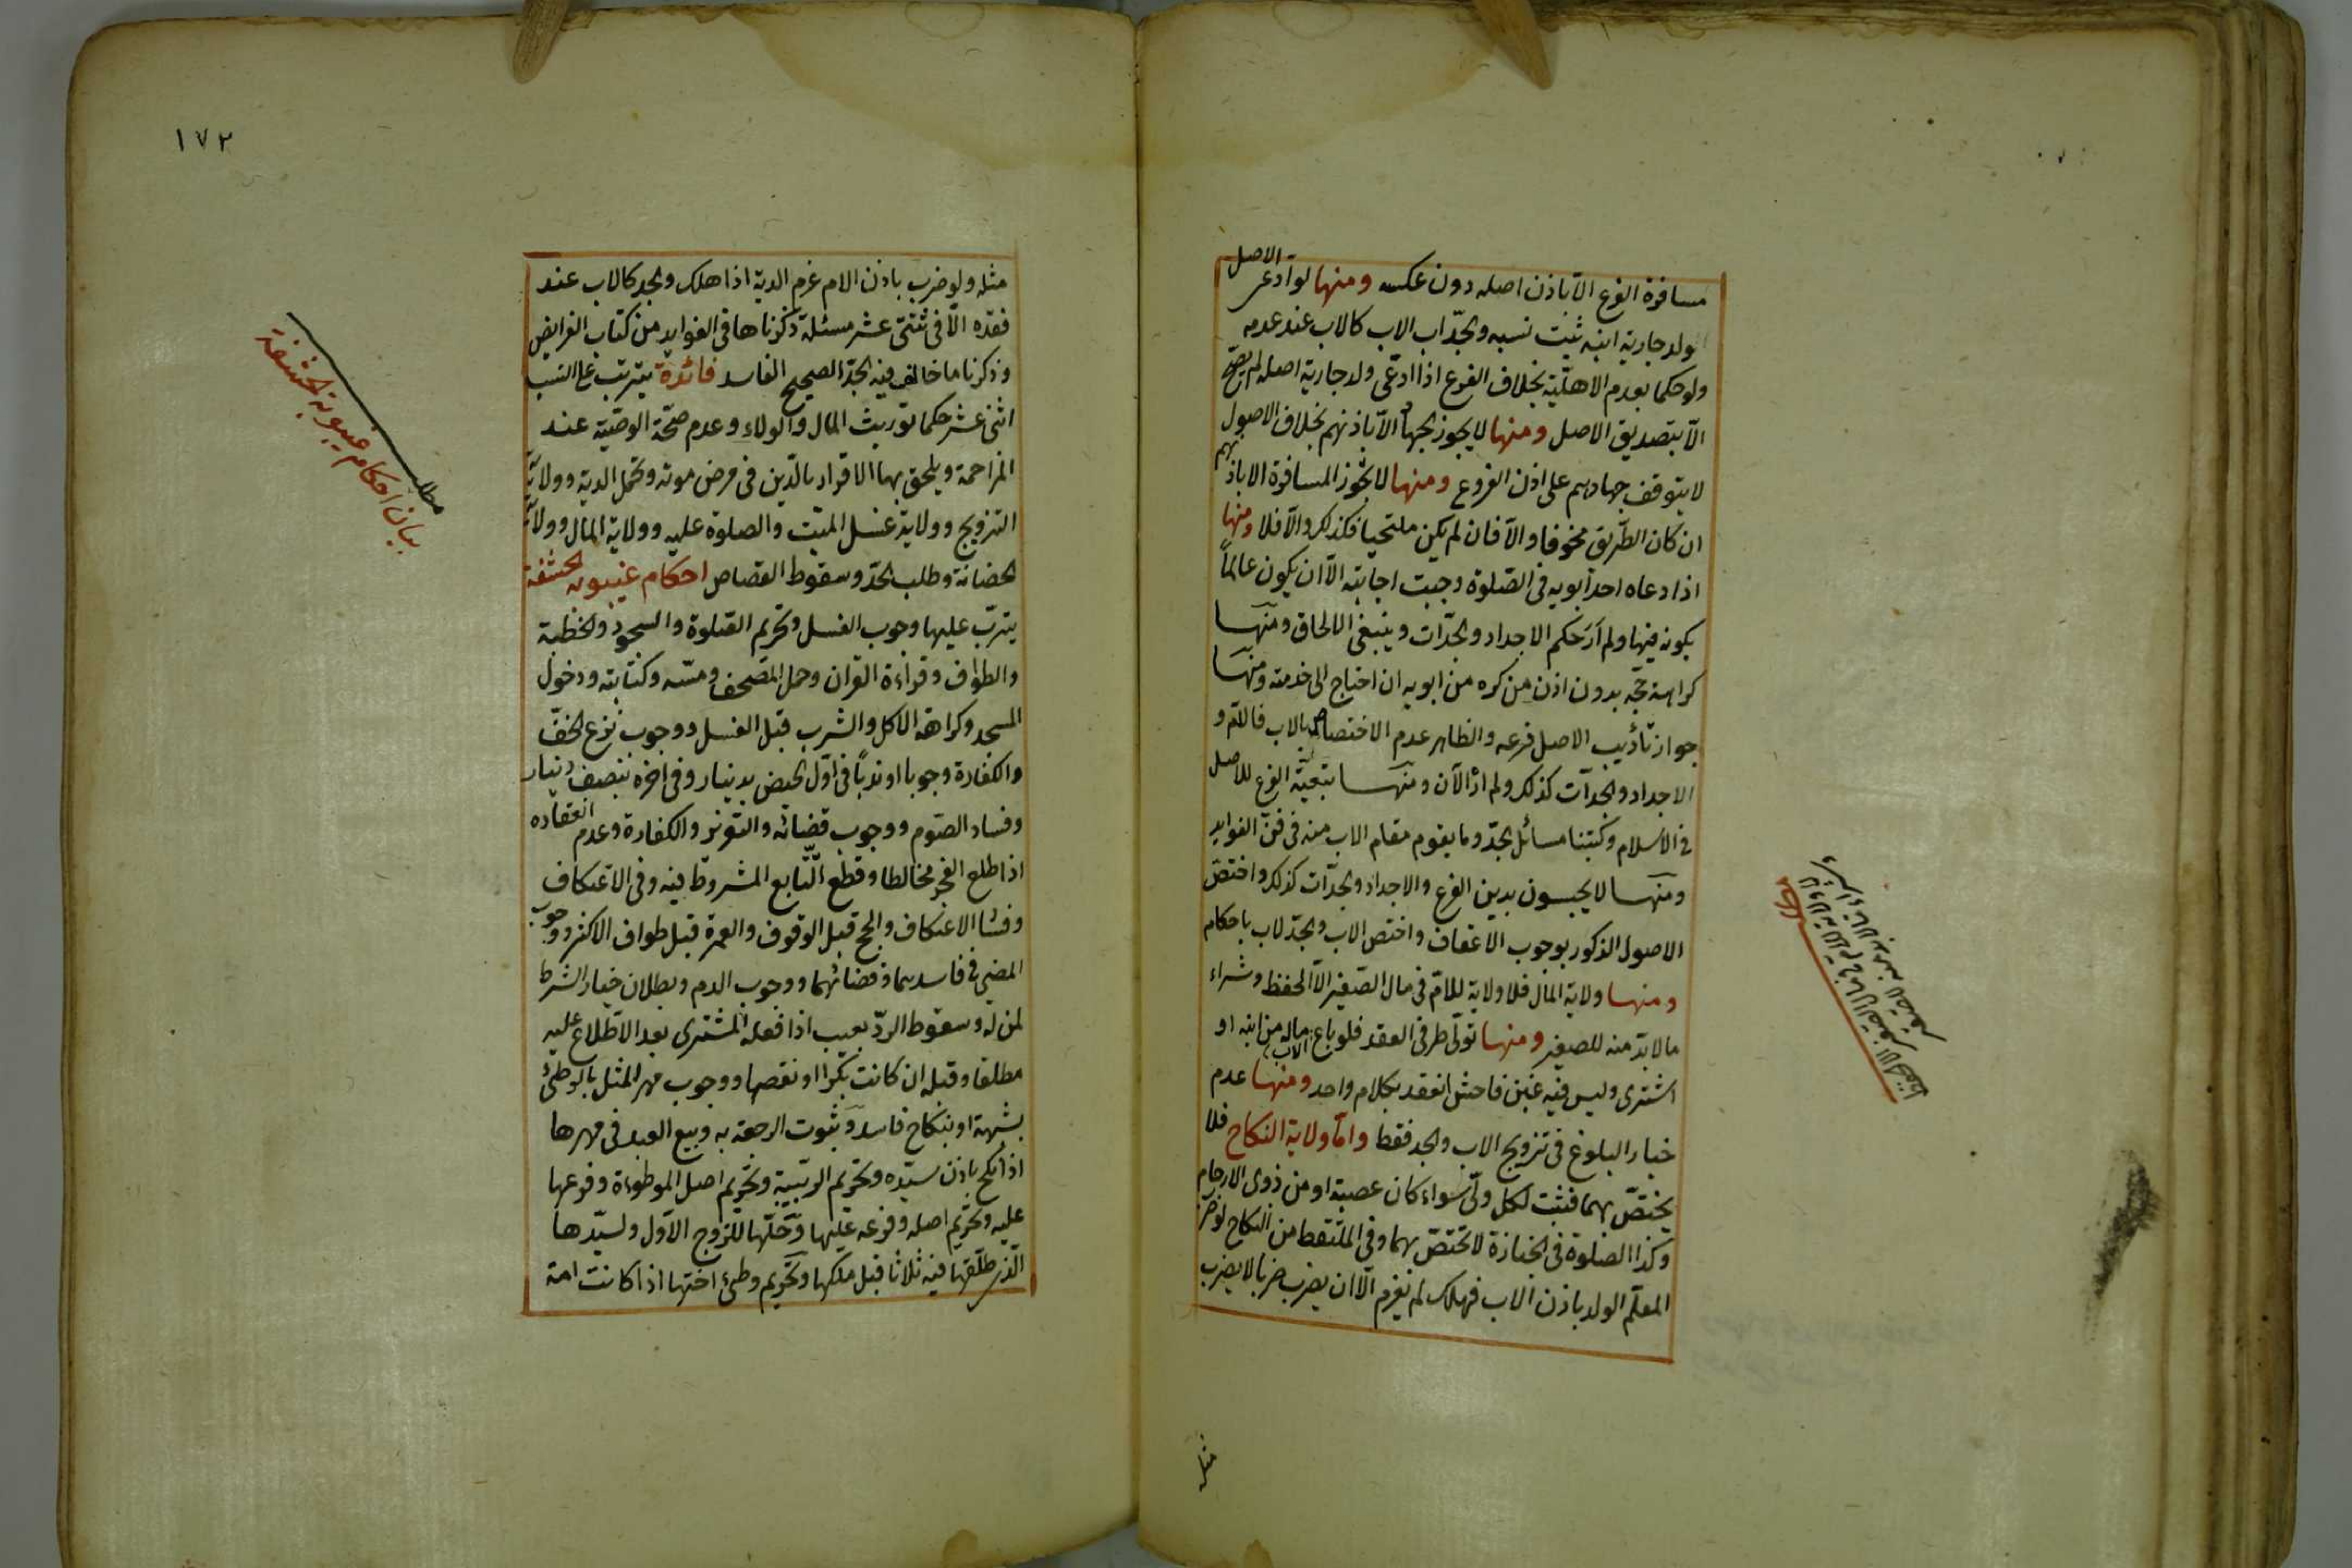 مسافرة الفرع الّا باذن اصله دون عكسه ومنها لو ادعى الاصل
ولد جارية ابنه ثبت نسبه والجدّ اب الاب كالاب عند عدمه
ولو حكما بعدم الاهليّة بخلاف الفرع اذا ادّعى ولد جارية اصله لم يصحّ
الّا بتصديق الاصل ومنها لا يجوز الجهاد الّا باذنهم بخلاف الاصول
لا يتوقف جهادهم على اذن الفروع ومنها لا تجوز المسافرة الا باذنهم
ان كان الطّريق مخوفا والّا فان لم يكن ملتحيا فكذلك والّا فلا ومنها
اذا دعاه احد ابويه فى الصّلوة وجبت اجابته الّا ان يكون عالماً
بكونه فيها ولم اَرَ حكم الاجداد والجدّات وينبغى الالحاق ومنها
كراهة حجّه بدون اذن من كره من ابويه ان احتاج الى خدمته ومنها
جواز تأديب الاصل فرعه والظاهر عدم الاختصاص بالاب فالامّ و
الاجداد والجدّات كذلك ولم اره الآن ومنها تبعيّة الفرع للاصل
فى الاسلام وكتبنا مسائل الجدّ وما يقوم مقام الاب منه فى فنّ الفوايد
ومنها لا يحبسون بدين الفرع والاجداد والجدّات كذلك واختصّ
الاصول الذكور بوجوب الاعفاف واختص الاب والجدّ لاب باحكام
ومنها ولاية المال فلا ولاية للامّ فى مال الصّغير الّا الحفظ وشراء
ما لا بدّ منه للصغير ومنها تولّى طرفى العقد فلو باع الاب ماله من ابنه او
اشترى وليس فيه غبن فاحش انعقد بكلام واحد ومنها عدم
خيار البلوغ فى تزويج الاب والجد فقط وامّا ولاية النكاح فلا
يختصّ بهما فتثبت لكل ولىّ سواء كان عصبة او من ذوى الارحام
وكذا الصّلوة فى الجنازة لا تختصّ بهما وفى الملتقط من النكاح لو ضرب
المعلّم الولد باذن الاب فهلك لم يغرم الّا ان يضرب ضربا لا يضرب
مثله
١٧٢
مثله ولو ضرب باذن الام غرم الدية اذا هلك والجد كالاب عند
فقده الّا فى ثنتى عشر مسئلة ذكرناها فى الفوايد من كتاب الفرايض
وذكرنا ما خالف فيه الجدّ الصحيح الفاسد فائدة يترتب على النسب
اثنى عشر حكما توريث المال والولاء وعدم صحّة الوصيّة عند
المزاحمة ويلحق بها الاقرار بالدّين فى مرض موته وتحمل الدية وولاية
التزويج وولاية غسل الميّت والصلوة عليه وولاية المال وولاية
الحضانة وطلب الحدّ وسقوط القصاص احكام غيبوبة الحشفة
يترتب عليها وجوب الغسل وتحريم الصّلوة والسجود والخطبة
والطواف وقراءة القران وحمل المصحف ومسّه وكتابته ودخول
المسجد وكراهة الاكل والشرب قبل الغسل ووجوب نزع الخفّ
والكفارة وجوبا او ندباً فى اوّل الحيض بدينار وفى اخره بنصف دينار
وفساد الصّوم ووجوب قضائه والتعزير والكفارة وعدم انعقاده
اذا طلع الفجر مخالطا وقطع التّتابع المشروط فيه وفى الاعتكاف
وفساد الاعتكاف والحج قبل الوقوف والعمرة قبل طواف الاكثر ووجوب
المضى فى فاسدهما وقضائهما ووجوب الدم وبطلان خيار الشرط
لمن له وسقوط الردّ بعيب اذا فعله المشترى بعد الاطلاع عليه
مطلقا وقبله ان كانت بكرا او نقصها ووجوب مهر المثل بالوطئ
بشبهة او بنكاح فاسد وثبوت الرجعة به وبيع العبد فى مهرها
اذا نكح باذن سيّده وتحريم الربيبة وتحريم اصل الموطوءة وفرعها
عليه وتحريم اصله وفرعه عليها وحلّها للزوج الاوّل ولسيّدها
الّذى طلّقها فيه ثلاثا قبل ملكها وتحريم وطئ اختها اذا كانت امة
مطلب
بيان احكام غيبوبة الحشفة